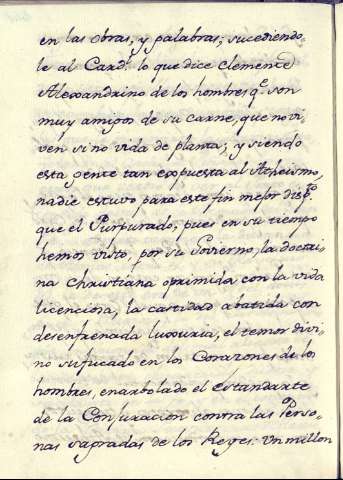 en las obras, y palabras; sucediendo
le al Card.l lo que dice Clemente
Alexandrino de los hombres q.e son
muy amigos de su carne, que no vi
ven sino vida de planta; y siendo
esta gente tan expuesta al Atheismo,
nadie estuvo para este fin mejor disp.to
que el Purpurado; pues en su tiempo
hemos visto, por su Governo, la doctri
na Christiana oprimida con la vida
licenciosa, la castidad abatida con
desenfrenada luxuria, el temor divi
no sufucado en los Corazones de los
hombres, enarbolado el estandarte
de la Conjuracion contra las Perso
nas sagradas de los Reyes. Un millon